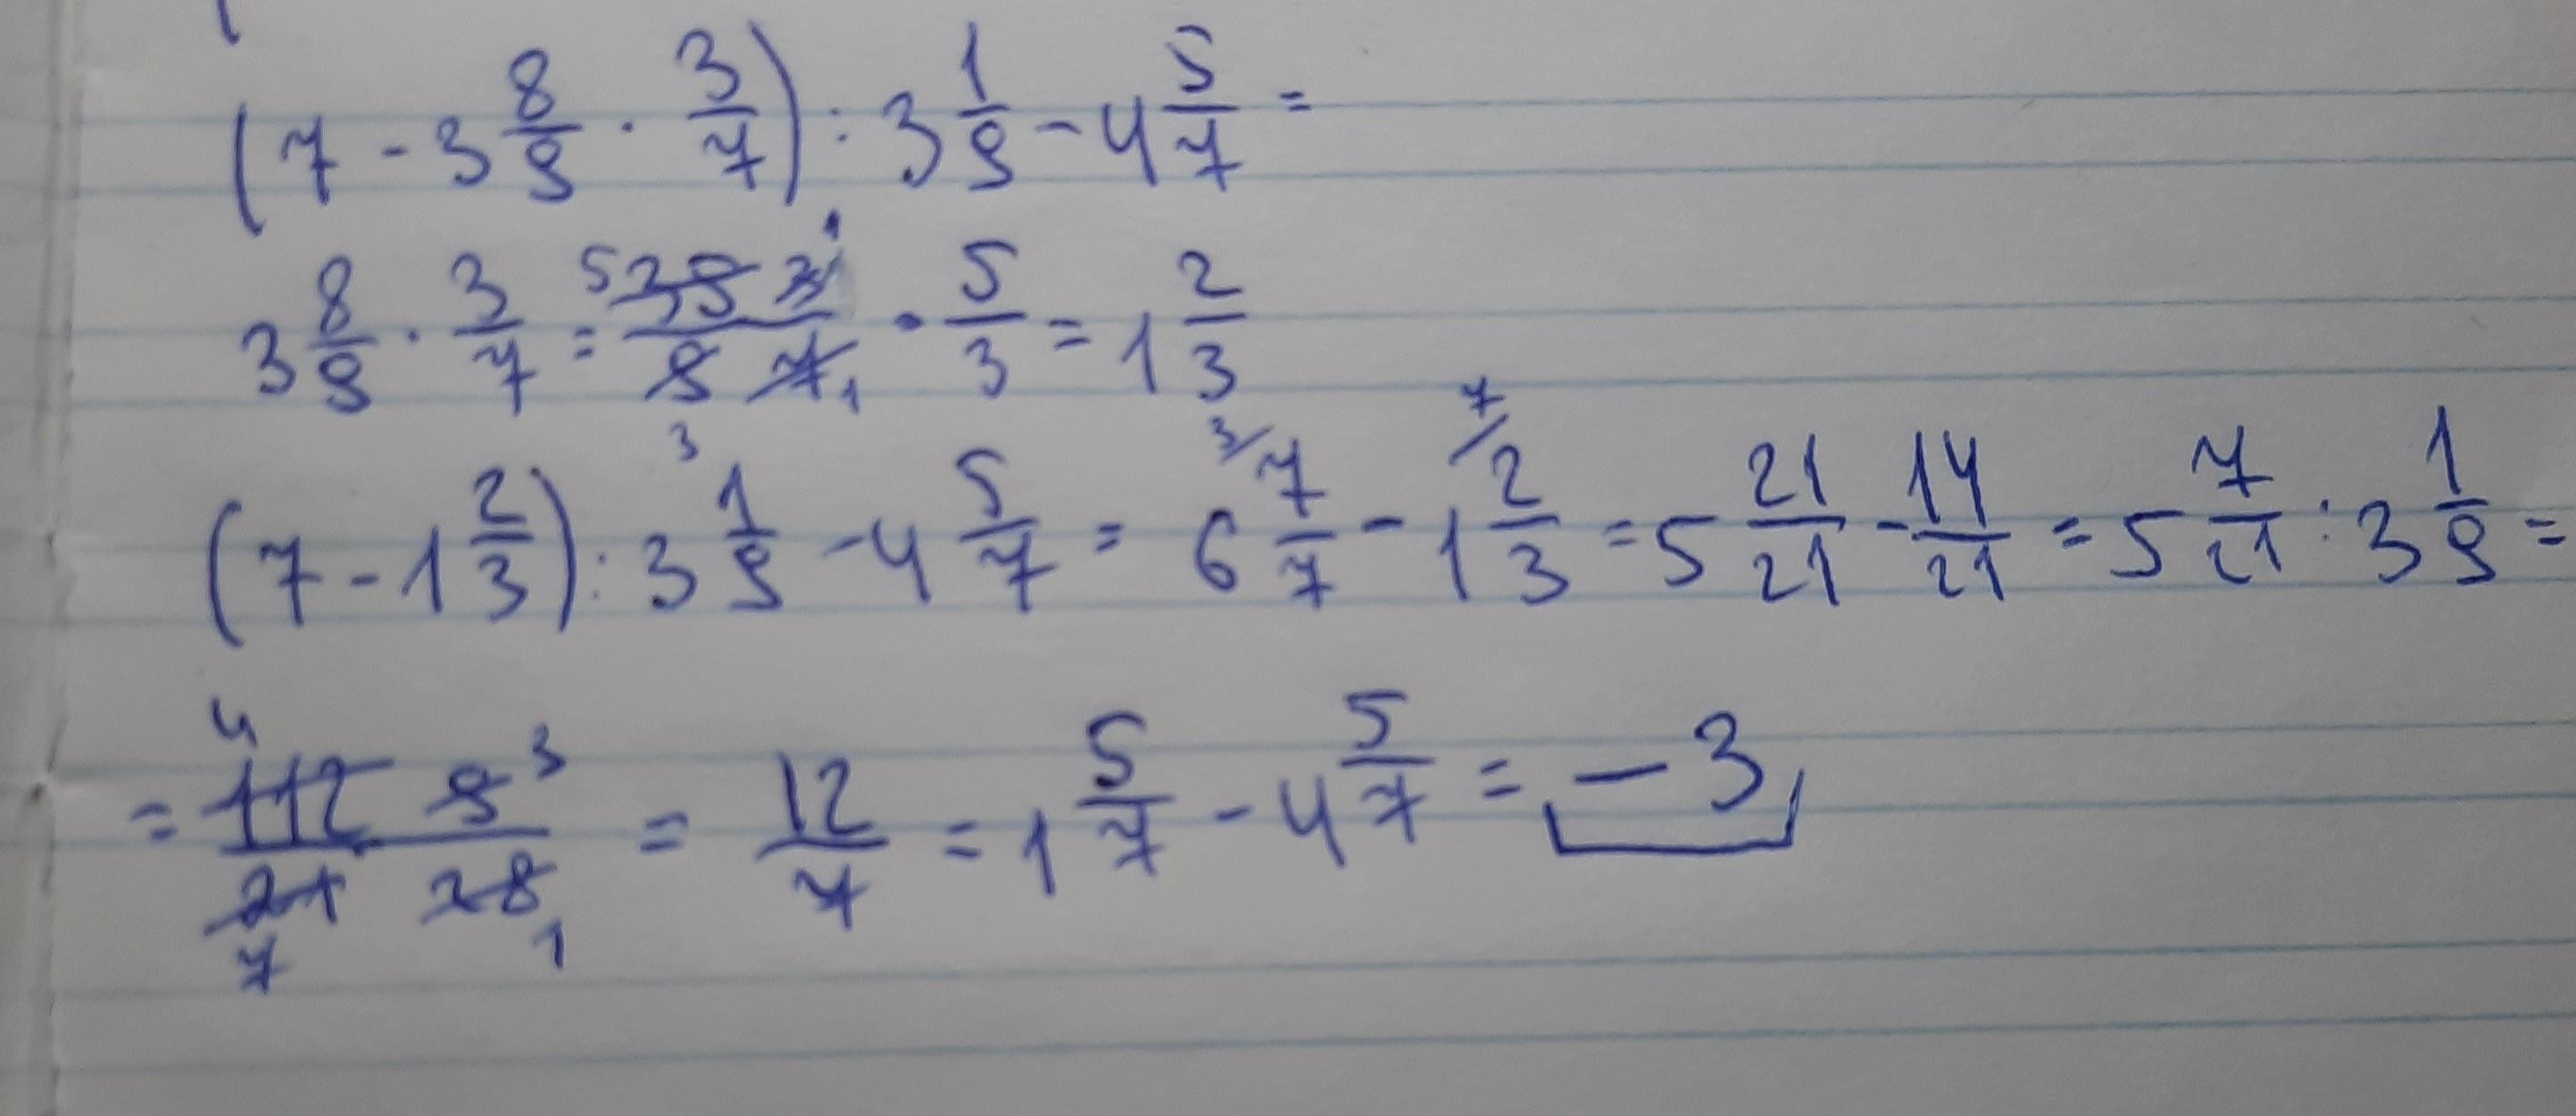 (7 - 3 8/9 · 3/7) : 3 1/9 - 4 5/7 =
3 8/9 · 3/7 = 5 35 3 1 / 9 3 7 1 · 5/3 = 1 2/3
(7 - 1 2/3) : 3 1/9 - 4 5/7 = 6 3/ 7/7 - 1 7/ 2/3 = 5 21/21 - 14/21 = 5 7/21 : 3 1/9 =
= 4 112 9 3 / 21 7 28 1 = 12/7 = 1 5/7 - 4 5/7 = - 3